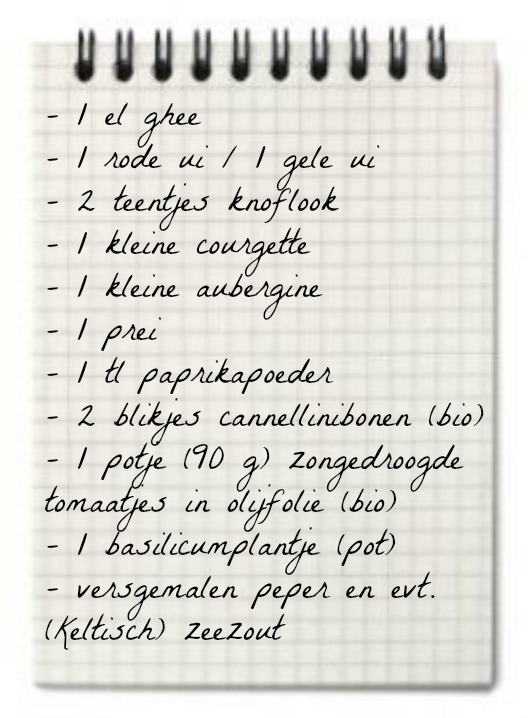 - 1 el ghee
- 1 rode ui / 1 gele ui
- 2 teentjes knoflook
- 1 kleine courgette
- 1 kleine aubergine
- 1 prei
- 1 tl paprikapoeder
- 2 blikjes cannellinibonen (bio)
- 1 potje (90 g) zongedroogde
tomaatjes in olijfolie (bio)
- 1 basilicumplantje (pot)
- versgemalen peper en evt.
(Keltisch) zeezout